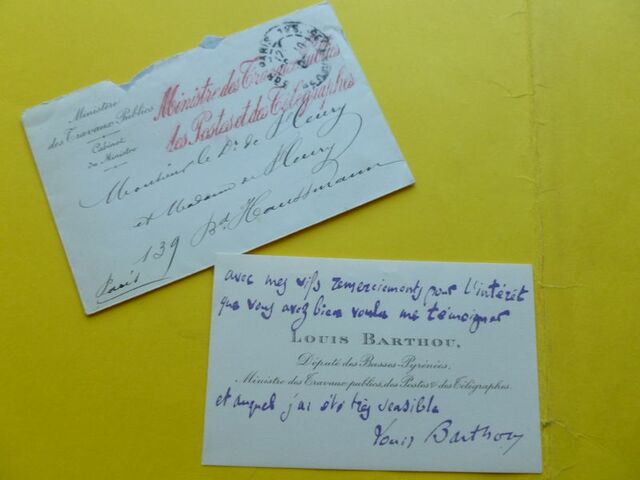 Ministère
des Travaux Publics
Cabinet
du Ministre
Ministre des Travaux publics
des Postes et des Télégraphes
PARIS
Monsieur le Dr de Fleury
et Madame de Fleury
139 Bd Haussmann
Paris
avec mes vifs remerciements pour l'intérêt
que vous avez bien voulu me témoigner
LOUIS BARTHOU,
Député des Basses-Pyrénées,
Ministre des Travaux publics, des Postes & des Télégraphes.
et auquel j'ai été très sensible
Louis Barthou